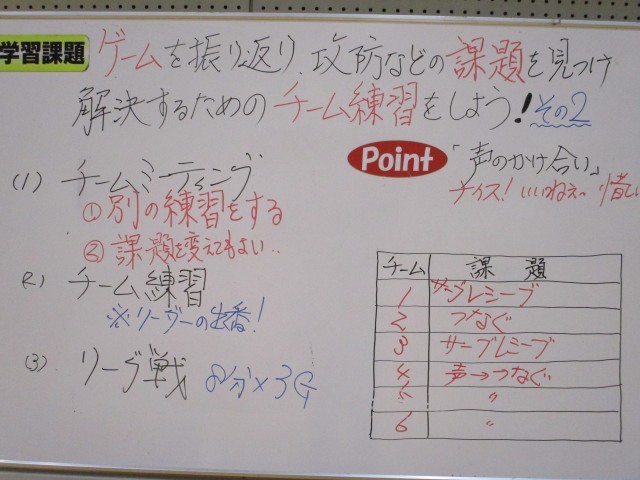 学習課題
ゲームを振り返り、攻防などの課題を見つけ
解決するためのチーム練習をしよう！その2
Point 「声のかけ合い」
ナイス！いいねぇ〜 惜しい
(1) チームミーティング
① 別の練習をする
② 課題を変えてもよい..
2) チーム練習
※リーダーの出番！
(3) リーグ戦 8分×3G
チーム 課題
1 サーブレシーブ
2 つなぐ
3 サーブレシーブ
4 声→つなぐ
5 〃
6 〃